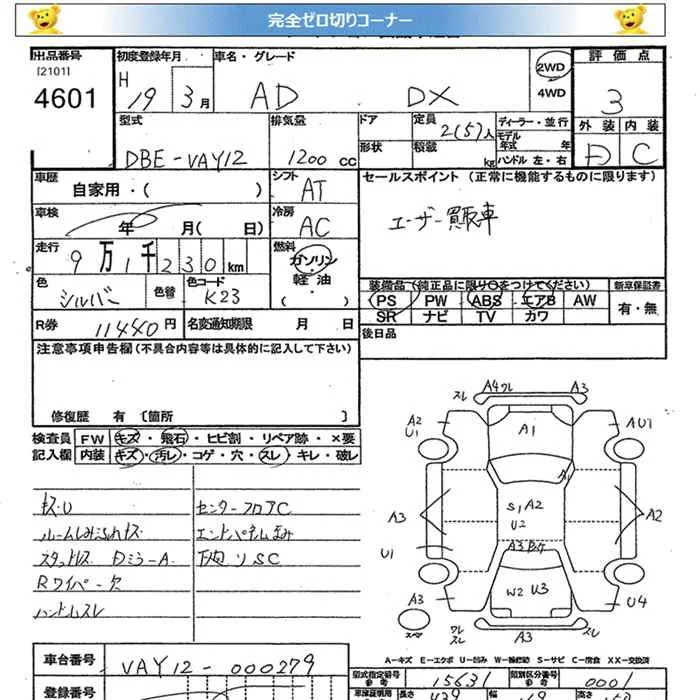 完全ゼロ切りコーナー
出品番号 初度登録年月 車名・グレード 2WD 評価点
[2101] H 4WD
4601 19 3月 AD DX 3
型式 排気量 ドア 定員 2(5)人 ディーラー・並行 外装 内装
モデル年式 年
DBE-VAY12 1200cc 形状 積載 kg ハンドル 左・右 D C
車歴 シフト セールスポイント (正常に機能するものに限ります)
自家用・( ) AT
車検 冷房 ユーザー買取車
年 月( 日) AC
走行 燃料
9万1千230km ガソリン
色 色替 色コード 軽油 装備品(純正品に限り○をつけてください) 新車保証書
シルバー K23 ・( ) PS PW ABS エアB AW 有・無
R券 11440円 名変通知期限 月 日 SR ナビ TV カワ
注意事項申告欄(不具合内容等は具体的に記入して下さい) 後日品
修復歴 有 〔箇所 〕
検査員 FW キズ・飛石・ヒビ割・リペア跡・×要
記入欄 内装 キズ・汚レ・コゲ・穴・スレ・キレ・破レ
キズ・U センターフロアC
スタッドレス Dミラ-A 下回リSC
Rワイパー欠
ハンドルスレ
スレ A4ワレ A3
A2 U1 A1 AU1
A1
A3 S1 A2 U2 A2
U1 A3
W2 U3
A3 U4
スペア ワレ スレ A3 スレ
A-キズ E-エクボ U-凹み W-補修跡 S-サビ C-腐食 XX-交換済
車台番号 VAY12-000279 型式指定番号 参考 15631 類別区分番号 参考 0001
登録番号 車庫証明用 長さ 439 幅 高さ